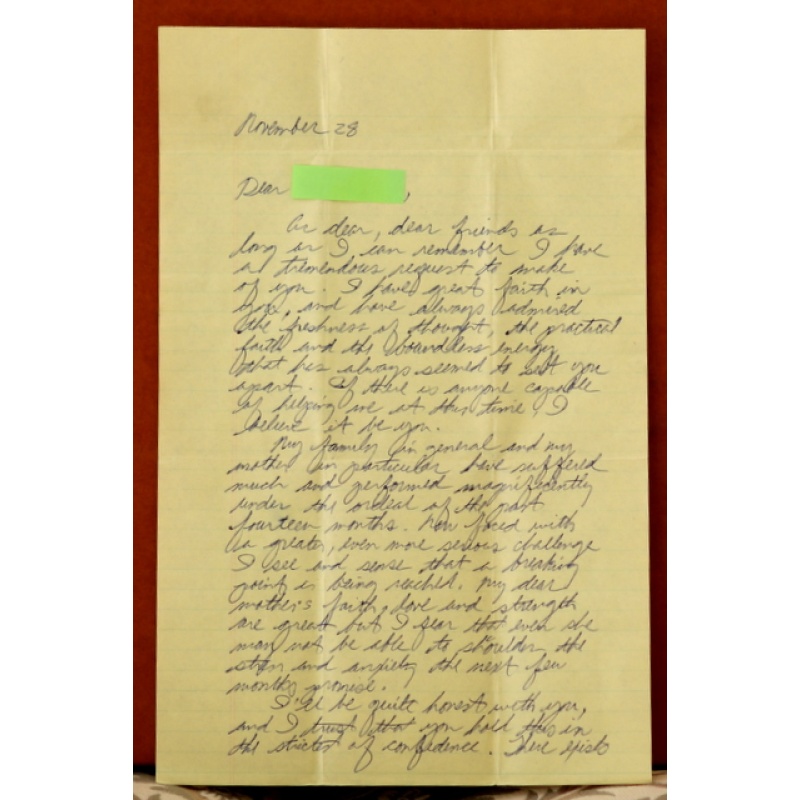 November 28
Dear ,
As dear, dear friends as
long as I can remember I have
a tremendous request to make
of you. I have great faith in
you, and have always admired
the freshness of thought, the practical
faith and the boundless energy
that has always seemed to set you
apart. If there is anyone capable
of helping me at this time I
believe it be you.
My family in general and my
mother in particular have suffered
much and performed magnificently
under the ordeal of the past
fourteen months. Now faced with
a greater, even more serious challenge
I see and sense that a breaking
point is being reached. My dear
mother's faith, love and strength
are great but I fear that even she
may not be able to shoulder the
strain and anxiety the next few
months promise.
I'll be quite honest with you,
and I trust that you hold this in
the strictest of confidence. There exists